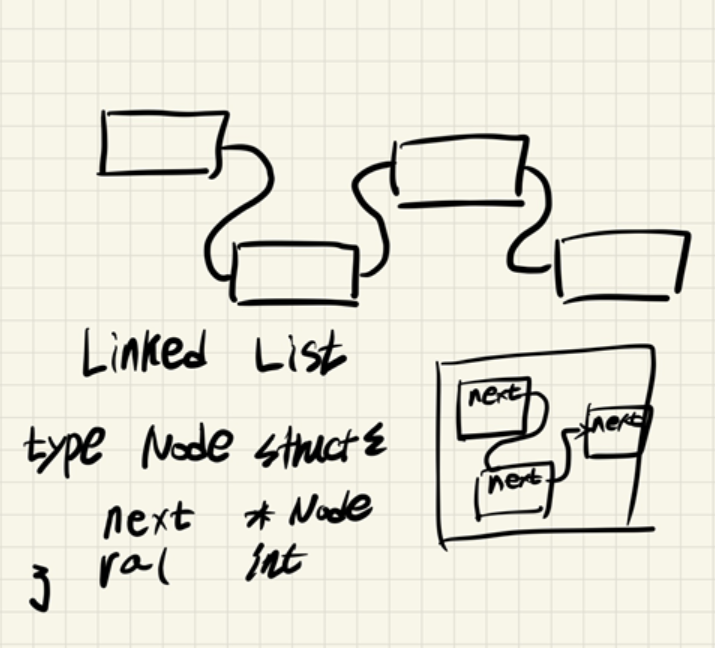 Linked List
type Node struct {
next * Node
val int
}
next
next
next